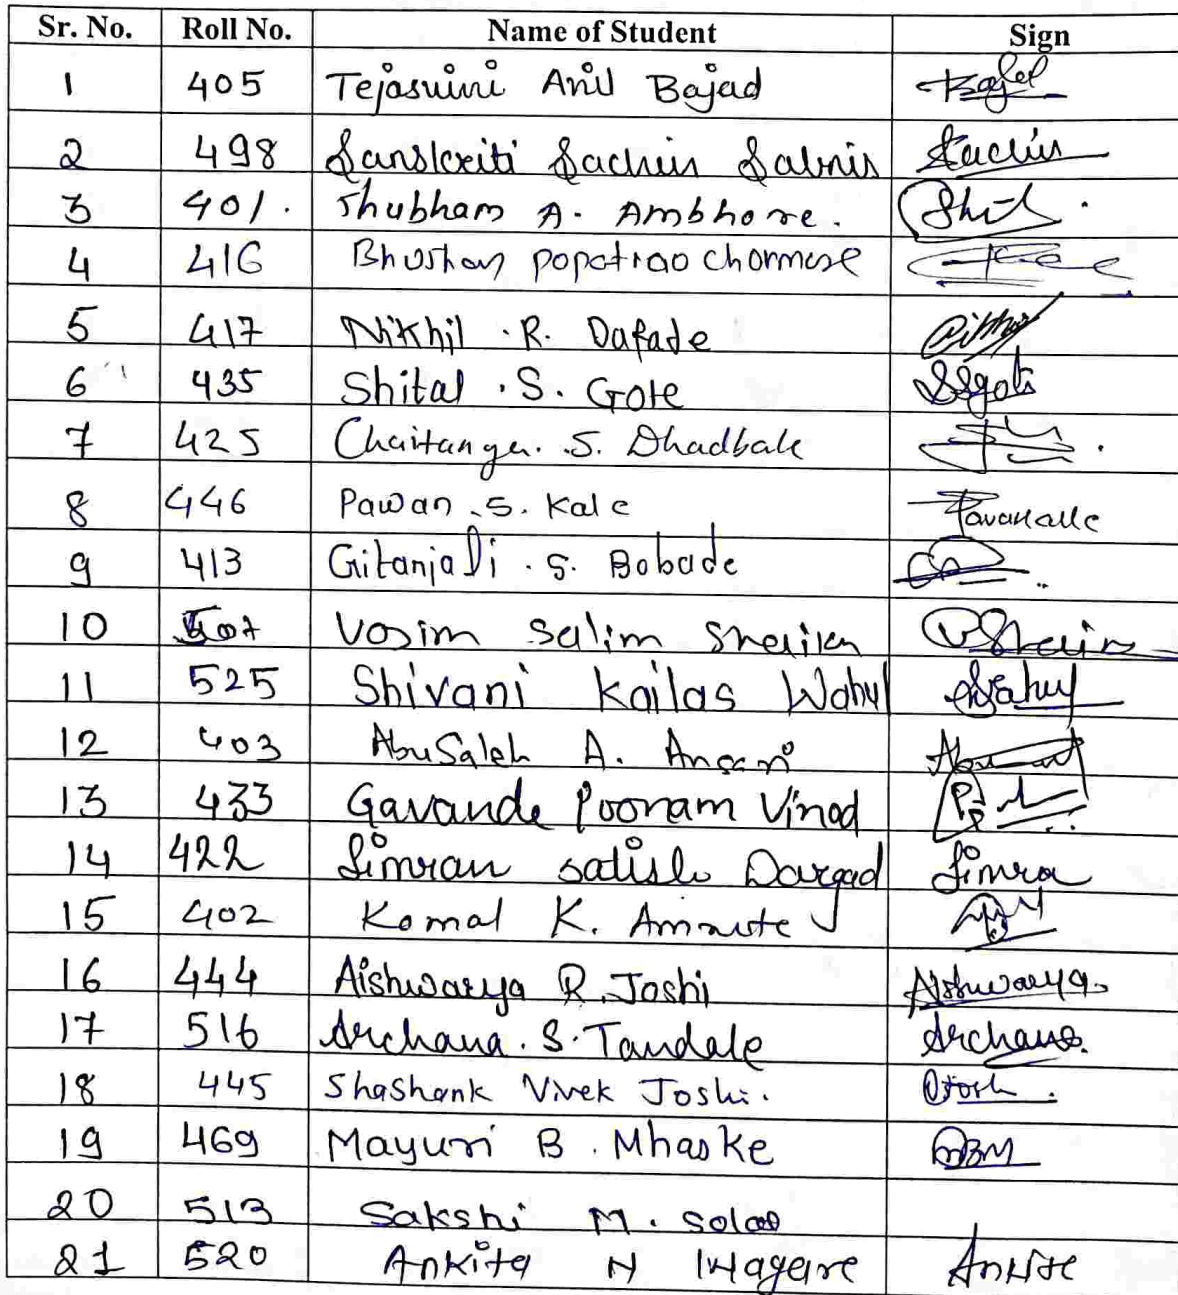 Sr. No. Roll No. Name of Student Sign
1 405 Tejaswini Anil Bajad
2 498 Sanskriti Sachin Sabnis Sachin
3 401. Shubham A. Ambhore.
4 416 Bhushan popatrao chormare
5 417 Nikhil .R. Dafade
6 435 Shital .S. Gote SSgote
7 425 Chaitanya. .S. Dhadbale
8 446 Pawan .S. Kale Pavankale
9 413 Gitanjali . S. Bobade
10 507 Vasim Salim Sheikh
11 525 Shivani Kailas Wahul
12 403 AbuSaleh A. Ansari
13 433 Gavande Poonam Vinod
14 422 Simran Satish Dargad Simra
15 402 Komal K. Amrute
16 444 Aishwarya R. Joshi Aishwarya.
17 516 Archana. S. Tandale Archana.
18 445 Shashank Vivek Joshi.
19 469 Mayuri B. Mhaske MBM
20 513 Sakshi M.
21 520 Ankita N Waghre Ankita